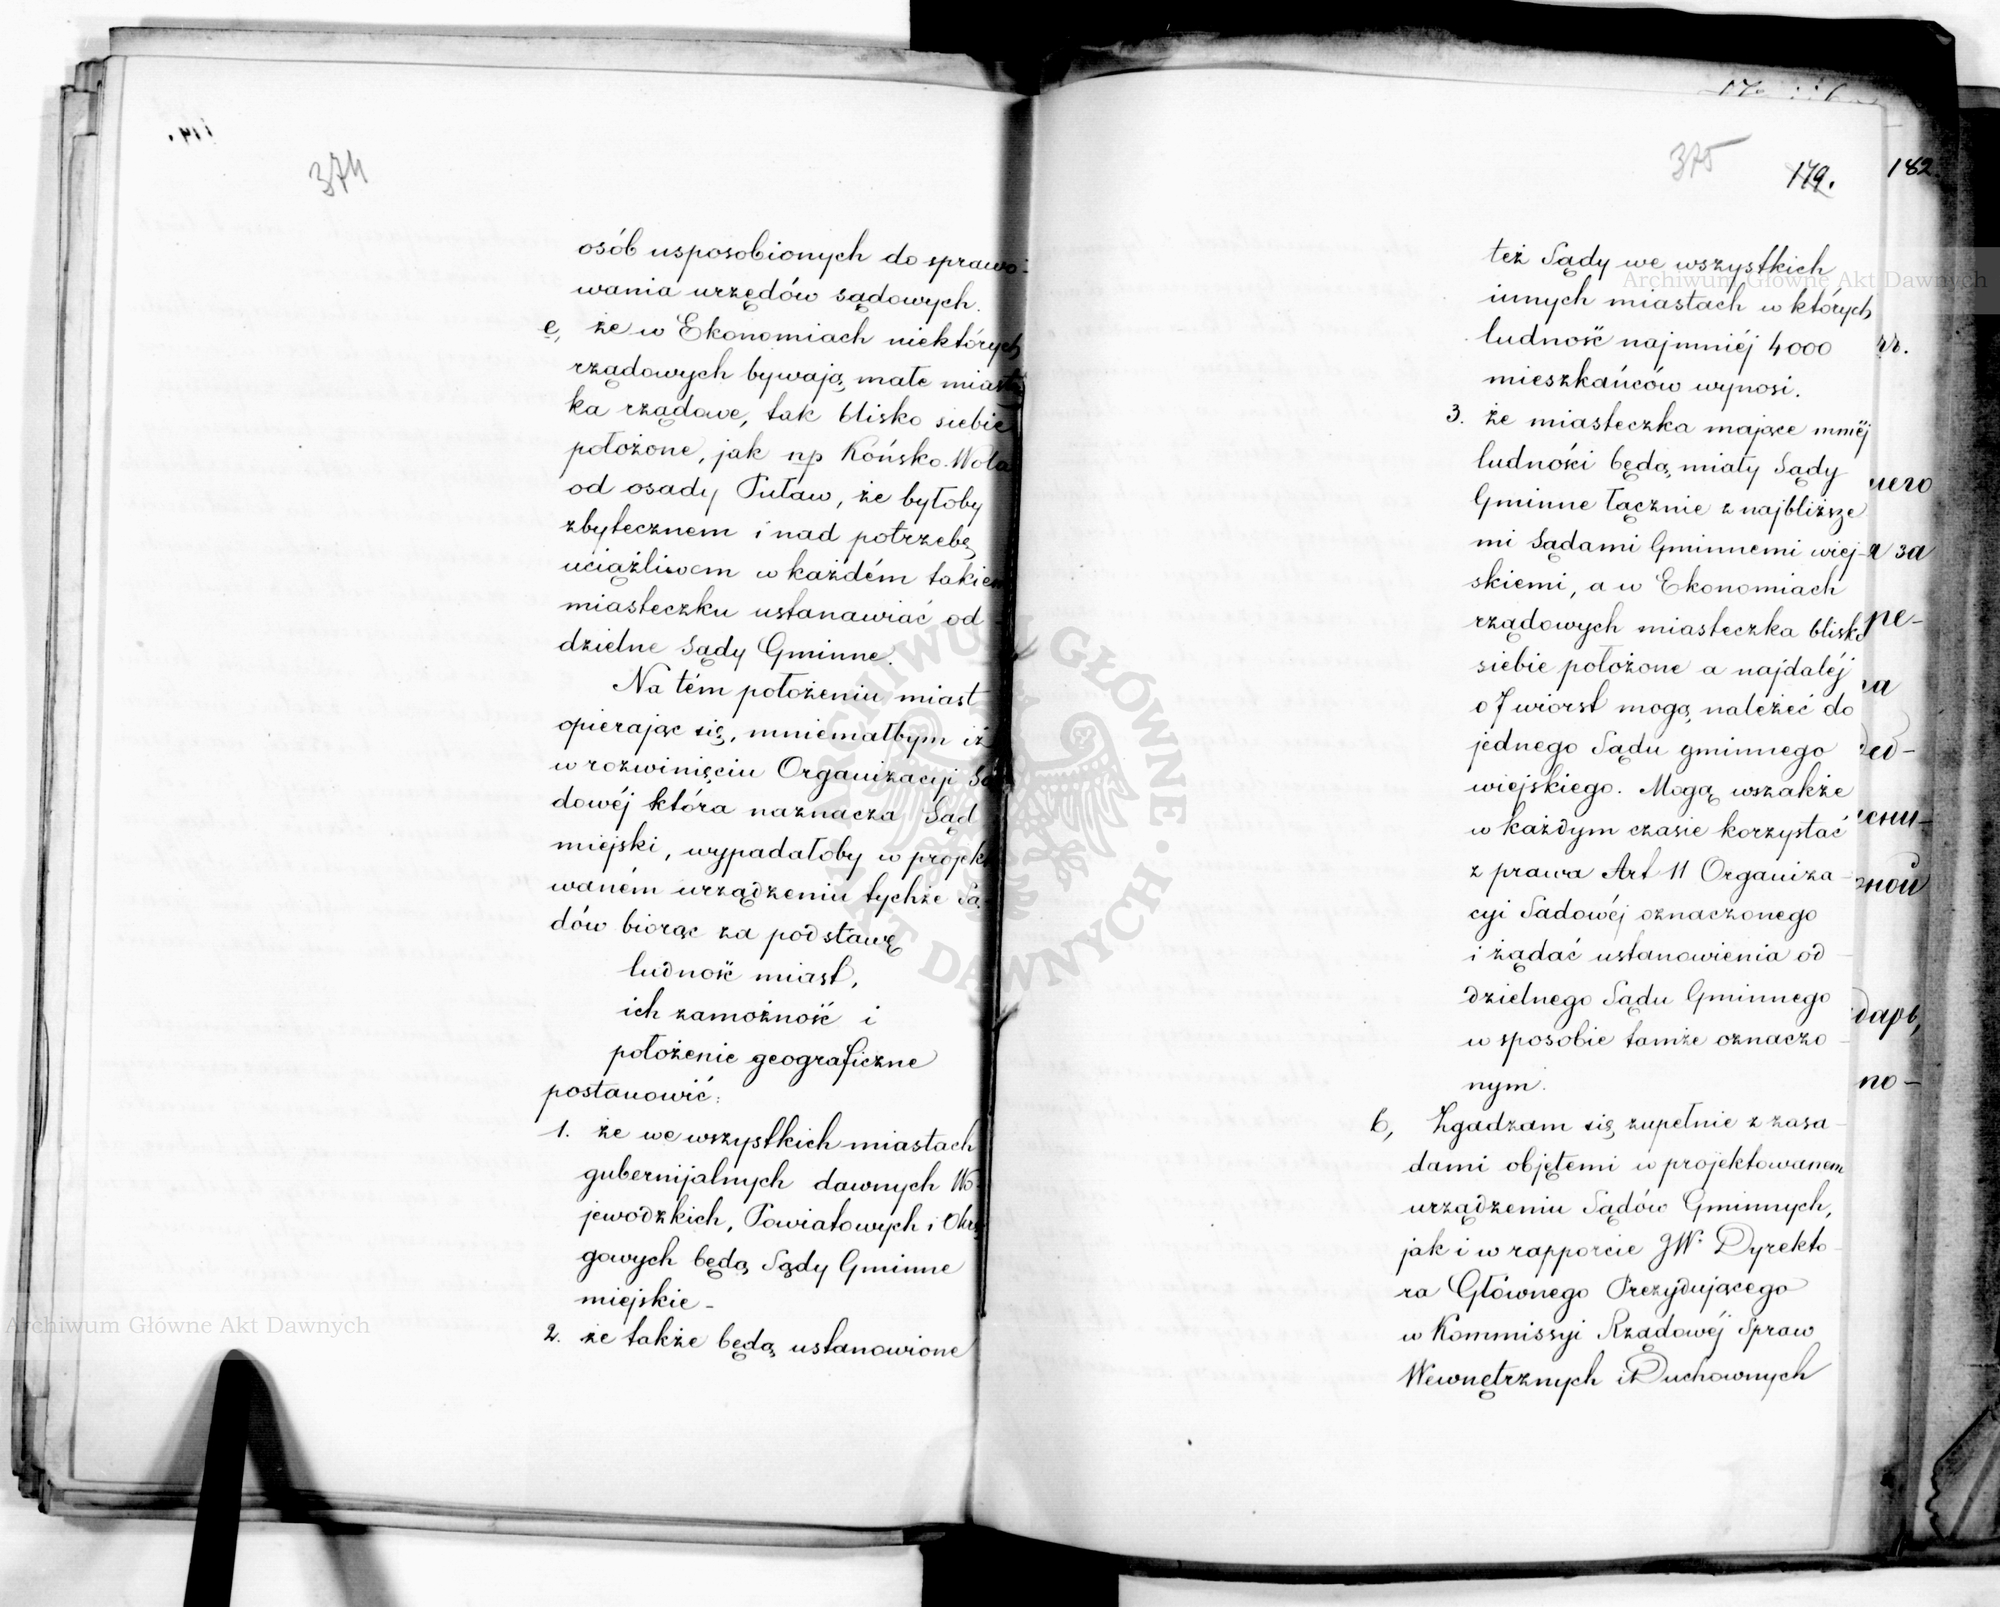 374
osób usposobionych do sprawo-
wania urzędów sądowych.
e, że w Ekonomiach niektórych
rządowych bywają małe miastecz
ka rządowe, tak blisko siebie
położone, jak np Końsko-Wola
od osady Puław, że byłoby
zbytecznem i nad potrzebę
uciążliwem w każdém takiem
miasteczku ustanawiać od-
dzielne Sądy Gminne.
Na tém położeniu miast
opierając się, mniemałbym iż
w rozwinięciu Organizacyi Są
dowéj która naznacza Sąd
miejski, wypadałoby w projekto
waném urządzeniu tychże Są-
dów biorąc za podstawę
ludność miast,
ich zamożność i
położenie geograficzne
postanowić:
1. że we wszystkich miastach
gubernijalnych dawnych Wo-
jewodzkich, Powiatowych i Okrę
gowych będą Sądy Gminne
miejskie -
2. że także będą ustanowione
375
179.
też Sądy we wszystkich
innych miastach w których
ludność najmniéj 4000
mieszkańców wynosi.
3. że miasteczka mające mniéj
ludności będą miały Sądy
Gminne łącznie z najbliższe
mi Sądami Gminnemi wiej-
skiemi, a w Ekonomiach
rządowych miasteczka blisko
siebie położone a najdaléj
o 7 wiorst mogą należéć do
jednego Sądu gminnego
wiejskiego. Mogą wszakże
w każdym czasie korzystać
z prawa Art 11 Organiza-
cyi Sadowéj oznaczonego
i żądać ustanowienia od-
dzielnego Sądu Gminnego
w sposobie tamże oznaczo-
nym.
6, Zgadzam się zupełnie z zasa-
dami objętemi w projektowanem
urządzeniu Sądów Gminnych,
jak i w rapporcie JW. Dyrekto-
ra Głównego Prezydującego
w Kommissyi Rządowéj Spraw
Wewnętrznych i Duchownych
182.
чего
я за
ре-
сни-
дарь,
по-
Archiwum Główne Akt Dawnych
Archiwum Główne Akt Dawnych
ARCHIWUM GŁÓWNE AKT DAWNYCH